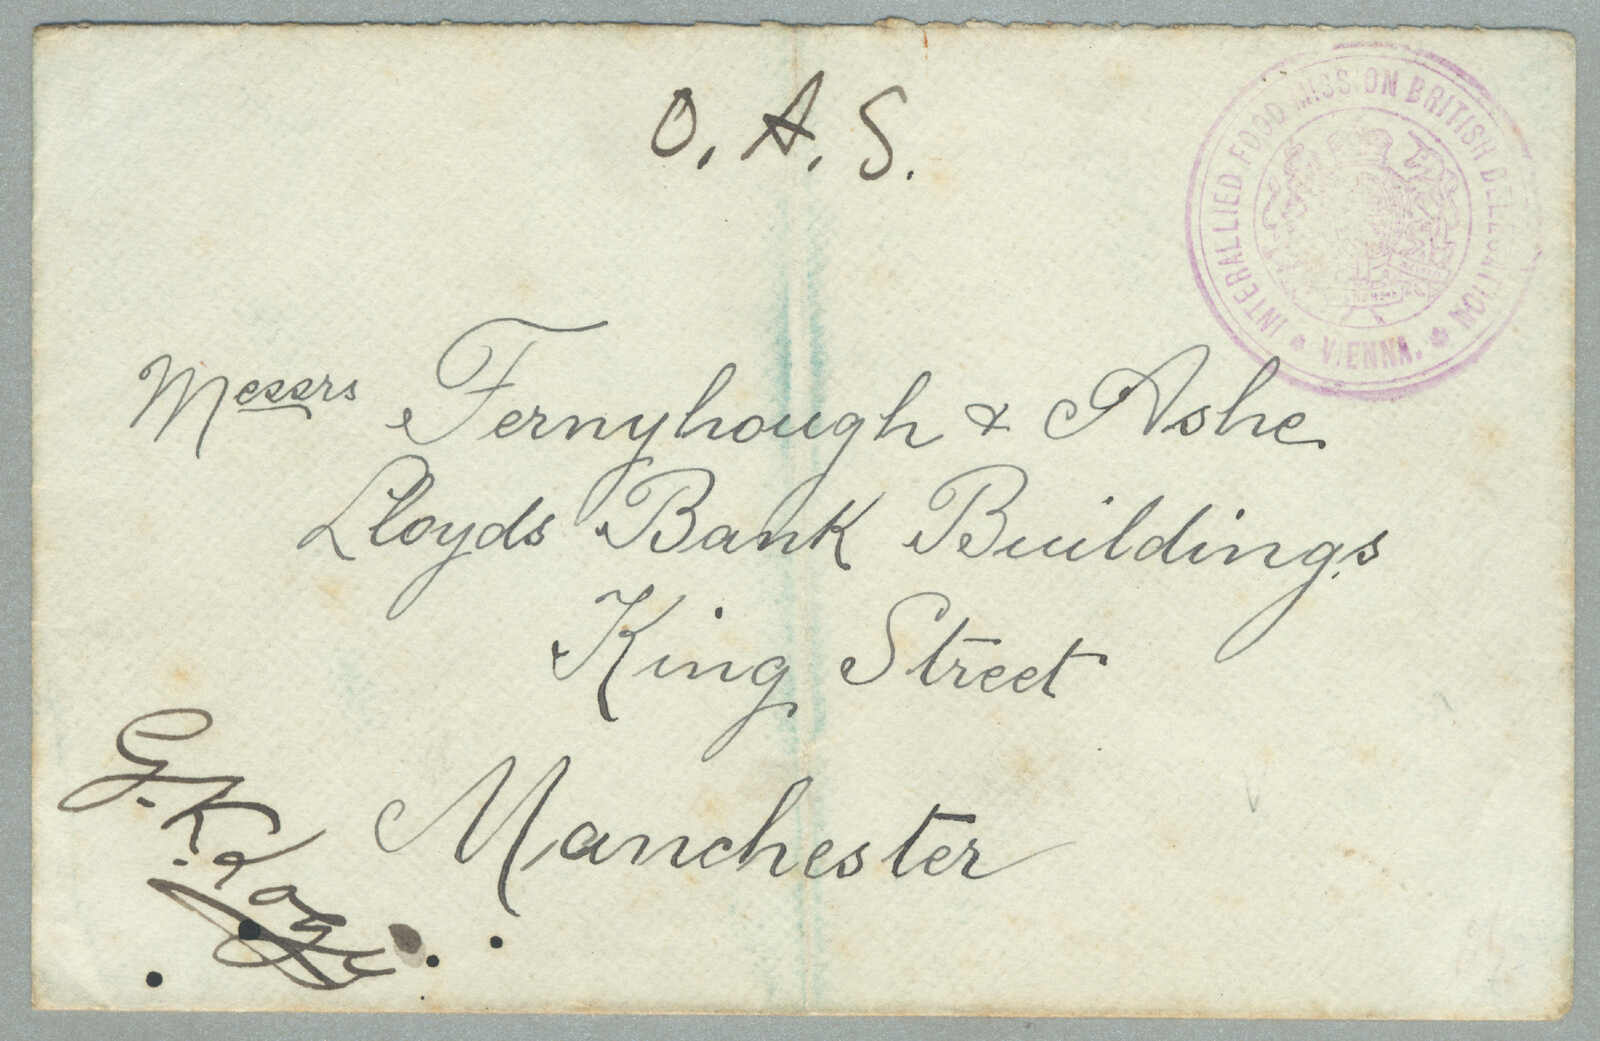 O. A. S.
INTERALLIED FOOD MISSION BRITISH DELEGATION
* VIENNA. *
Messrs Fernyhough & Ashe
Lloyds Bank Buildings
King Street
Manchester
G. K.